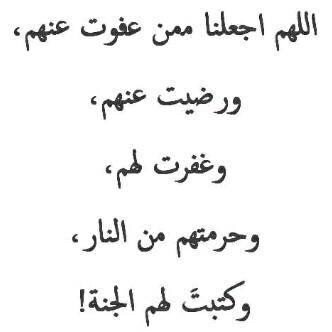 اللهم اجعلنا ممن عفوت عنهم،
ورضيت عنهم،
وغفرت لهم،
وحرمتهم من النار،
وكتبتَ لهم الجنة!